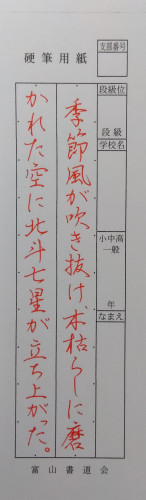 硬筆用紙
支部番号
段級位
段級
学校名
小中高
一般
年
なまえ
季節風が吹き抜け、木枯らしに磨
かれた空に北斗七星が立ち上がった。
富山書道会